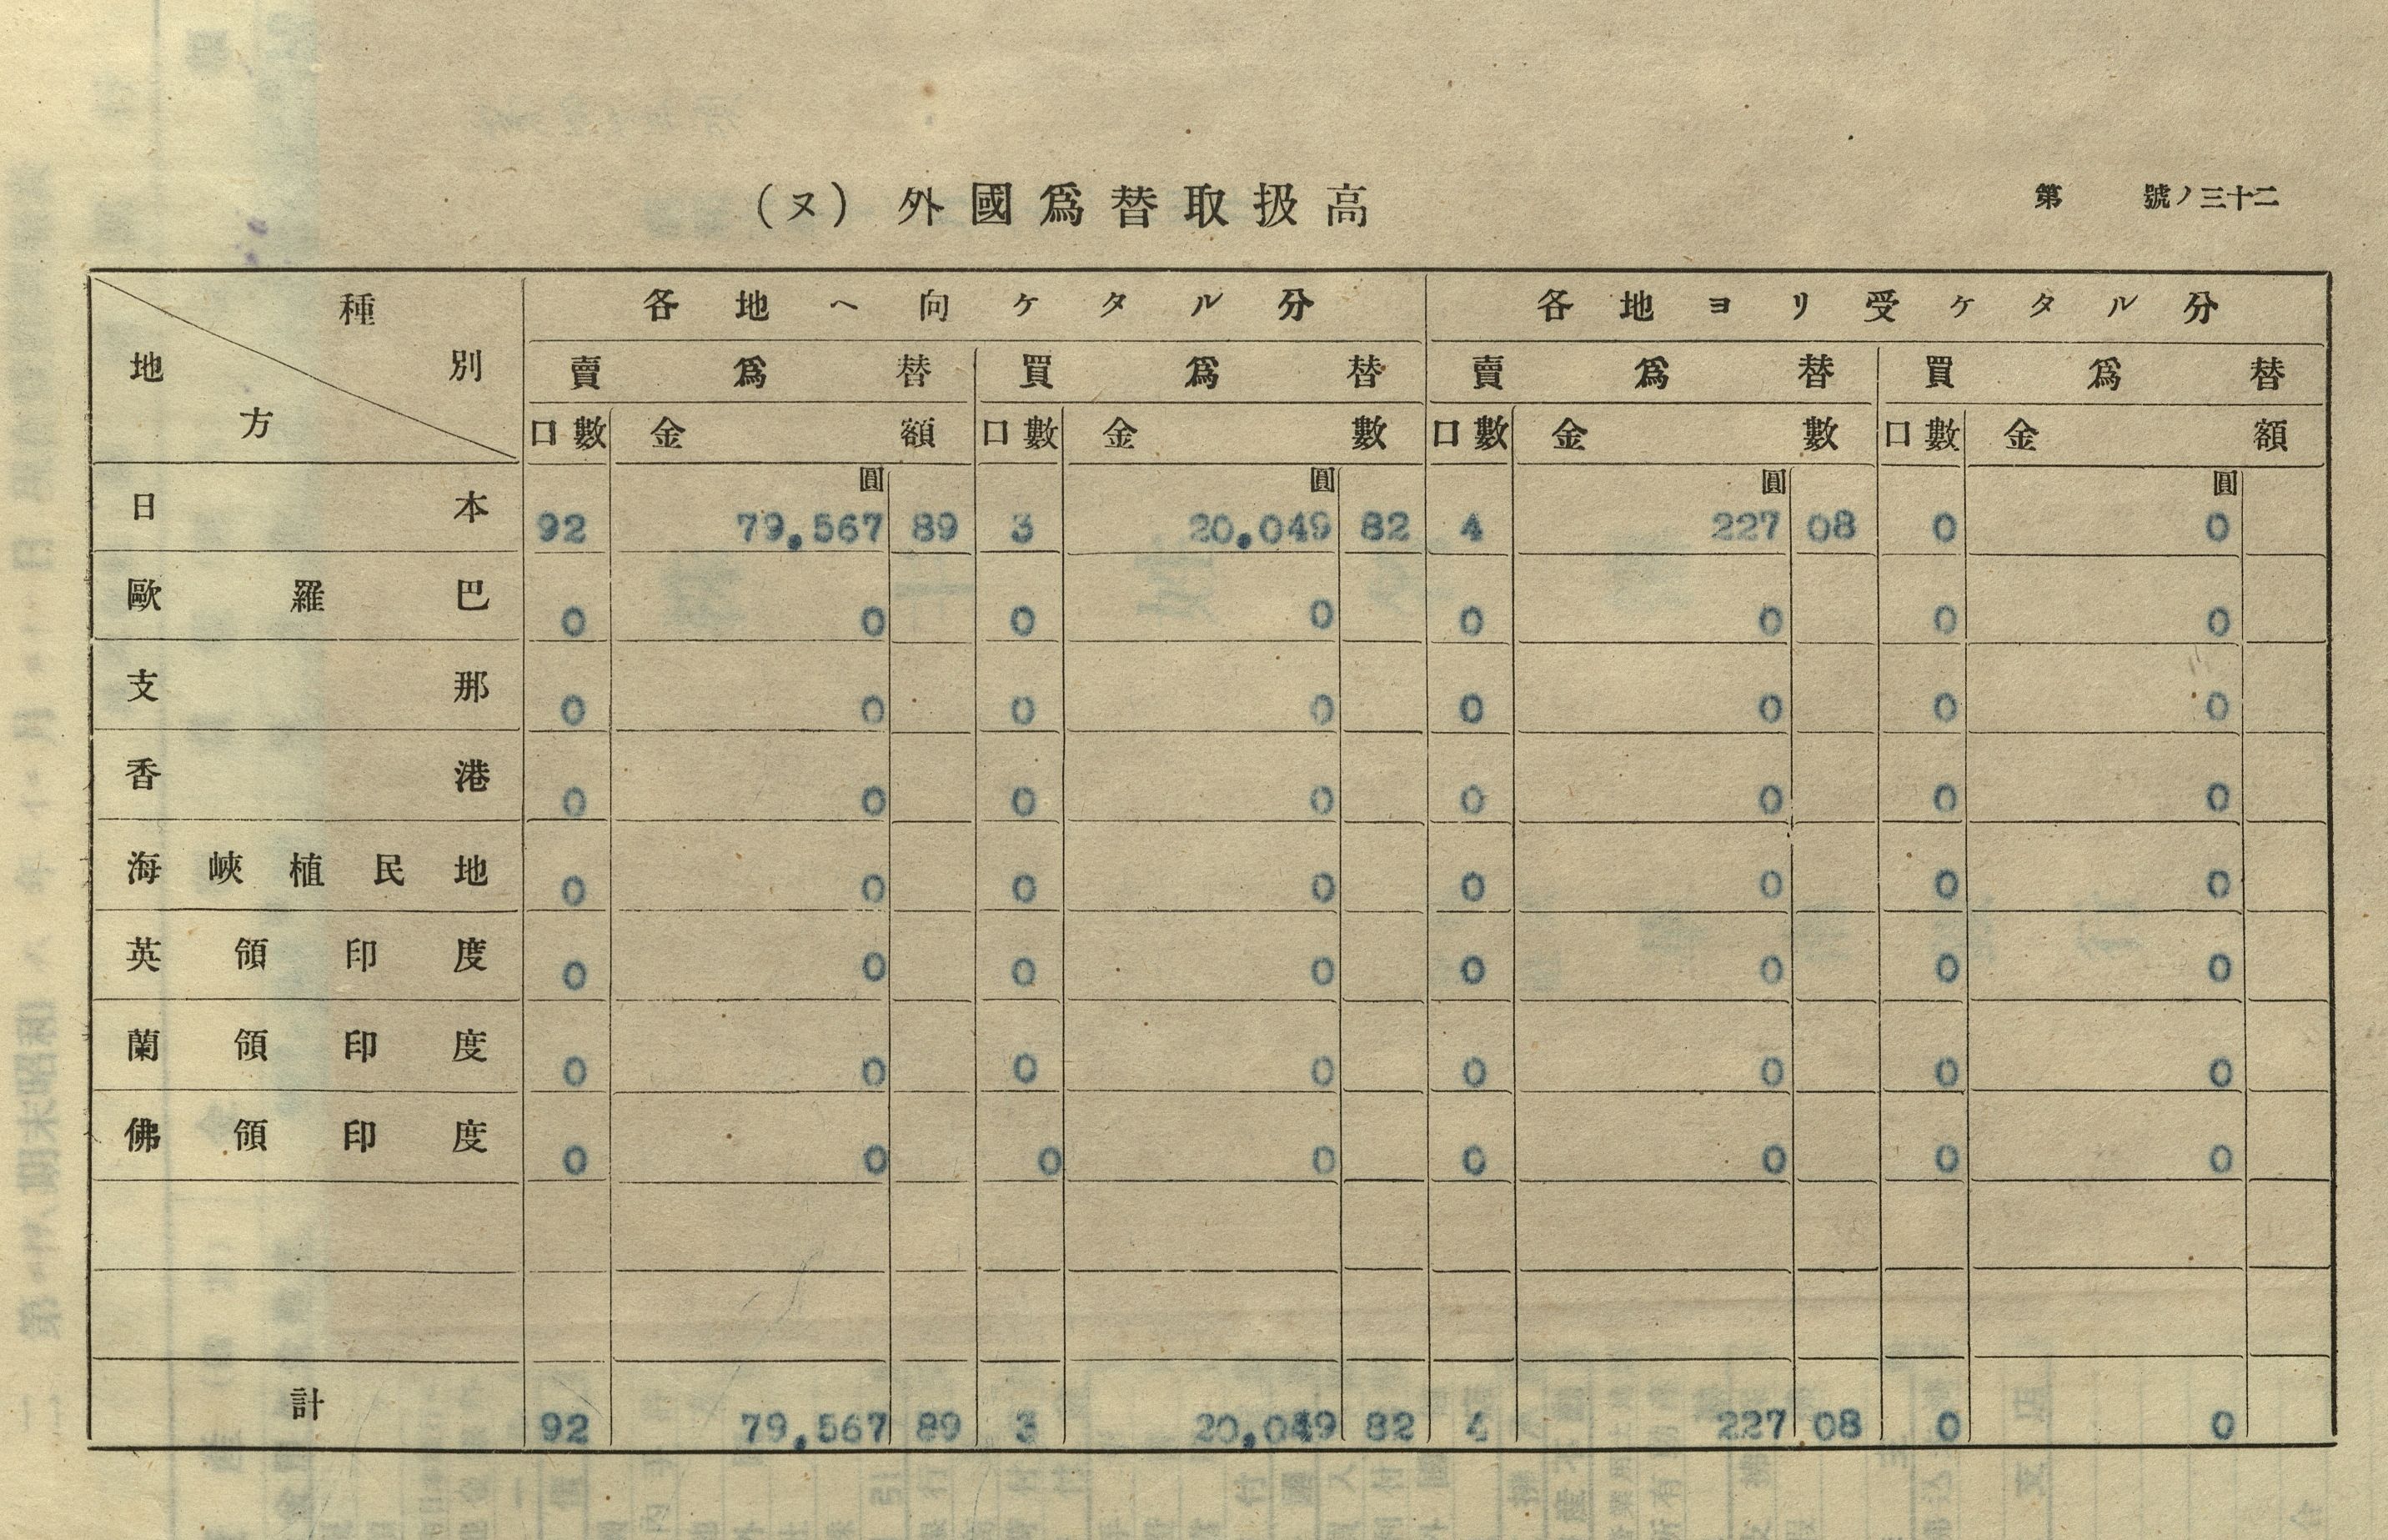 (ヌ) 外國爲替取扱高
第 號ノ三十二
種別 地方
各地ヘ向ケタル分 各地ヨリ受ケタル分
賣爲替 買爲替 賣爲替 買爲替
口數 金額 口數 金數 口數 金數 口數 金額
圓 圓 圓 圓
日本 92 79,567 89 3 20,049 82 4 227 08 0 0
歐羅巴 0 0 0 0 0 0 0 0
支那 0 0 0 0 0 0 0 0
香港 0 0 0 0 0 0 0 0
海峽植民地 0 0 0 0 0 0 0 0
英領印度 0 0 0 0 0 0 0 0
蘭領印度 0 0 0 0 0 0 0 0
佛領印度 0 0 0 0 0 0 0 0
計 92 79,567 89 3 20,049 82 4 227 08 0 0